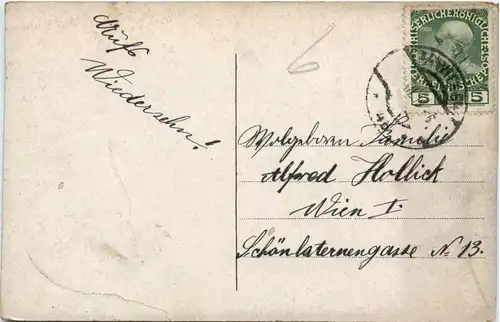 Auf's
Wiedersehn!
6
KAISERLICHE KÖNIGLICHE
5 5
Wolgeboren Familie
Alfred Hollick
Wien I.
Schönlaternengasse No 13.